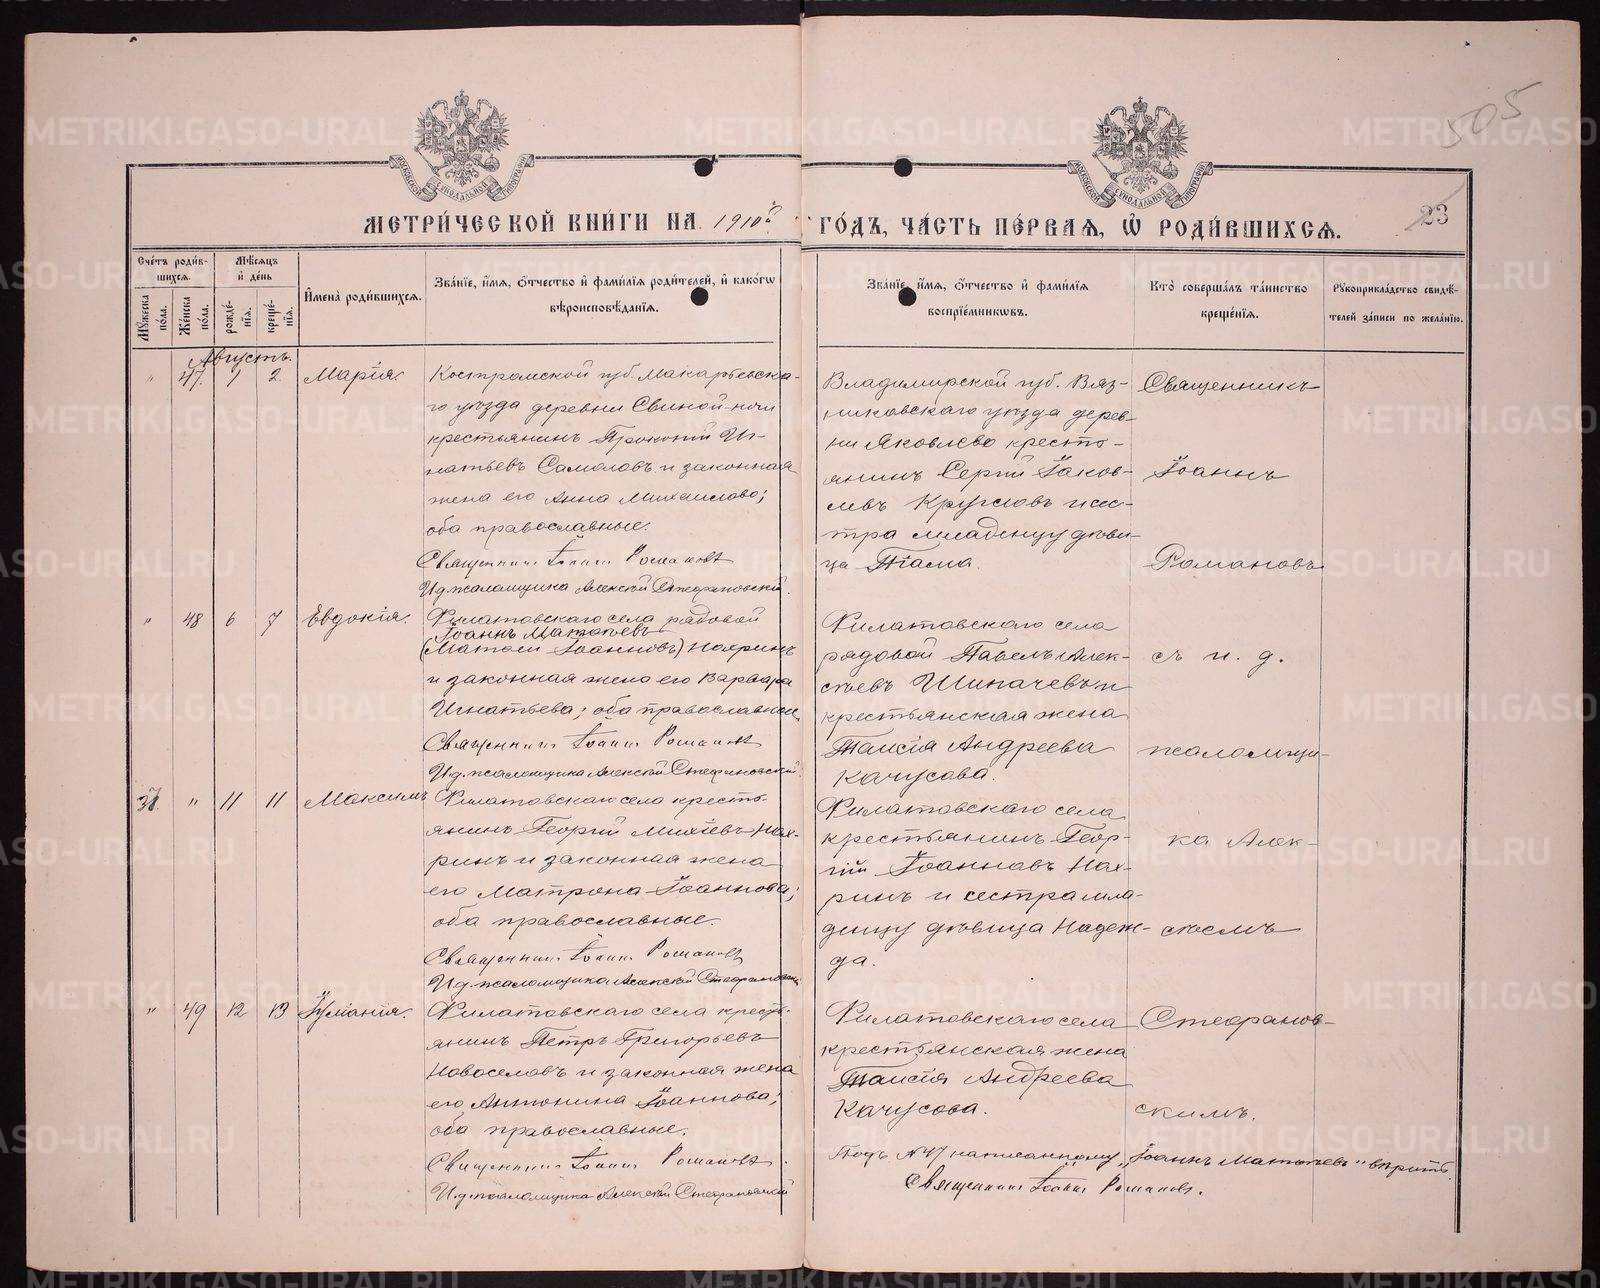 МЕТРИ́ЧЕСКОЙ КНИ́ГИ НА 1910й ГО́ДЪ, ЧА́СТЬ ПЕ́РВАЯ, Ѡ҆ РОДИ́ВШИХСЯ.
505
23
Сче́тъ роди́вшихся.
Му́жеска по́ла.
Же́нска по́ла.
Мѣ́сяцъ и҆ де́нь
рожде́нїя.
креще́нїя.
И҆мена̀ роди́вшихся.
Зва́нїе, и҆́мя, ѻ҆́тчество и҆ фами́лїя роди́телей, и҆ како́гѡ
вѣроисповѣ́данїя.
Зва́нїе, и҆́мя, ѻ҆́тчество и҆ фами́лїя
воспрїе́мниковъ.
Кто̀ соверша́лъ та́инство
креще́нїя.
Рукоприкла́дство свидѣ́-
телей за́писи по жела́нїю.
Августъ.
" 47. 1 2. Марія.
Костромской губ. Макарьевска-
го уѣзда деревни
крестьянинъ Прокопій Иг-
натьевъ и законная
жена его Анна Михаилова;
оба православные.
Священникъ Іоаннъ Романовъ
И.д. псаломщика Алексѣй Стефановскій.
Владимирской губ. Вяз-
никовскаго уѣзда дерев-
ни Яковлево кресть-
янинъ Сергій Іаков-
левъ Кругловъ и сес-
тра младенцу дѣви-
ца
Священникъ
Іоаннъ
Романовъ
" 48 6 7 Евдокія.
Филатовскаго села рядовой
Іоаннъ Матѳѣевъ
(Матѳей Іоанновъ)
и законная жена его Варвара
Игнатьева; оба православные.
Священникъ Іоаннъ Романовъ
И.д. псаломщика Алексѣй Стефановскій.
Филатовскаго села
рядовой Павелъ Алек-
сѣевъ Шипачевъ и
крестьянская жена
Таисія Андреева
Качусова.
съ и. д.
псаломщи-
37. " 11 11 Максимъ
Филатовскаго села кресть-
янинъ Георгій Нах-
ринъ и законная жена
его Матрона Іоаннова;
оба православные.
Священникъ Іоаннъ Романовъ
И.д. псаломщика Алексѣй Стефановскій
Филатовскаго села
крестьянинъ Геор-
гій Іоанновъ Нах-
ринъ и сестра мла-
денцу дѣвица Надеж-
да.
ка Алек-
сѣемъ
" 49 12 13 Іуліанія.
Филатовскаго села кресть-
янинъ Петръ Григорьевъ
Новоселовъ и законная жена
его Антонина Іоаннова;
оба православные.
Священникъ Іоаннъ Романовъ.
И.д. псаломщика Алексѣй Стефановскій
Филатовскаго села
крестьянская жена
Таисія Андреева
Качусова.
Стефанов-
скимъ.
Подъ № 47 написанному "Іоаннъ Матѳѣевъ" вѣрить.
Священникъ Іоаннъ Романовъ.
METRIKI.GASO-URAL.RU